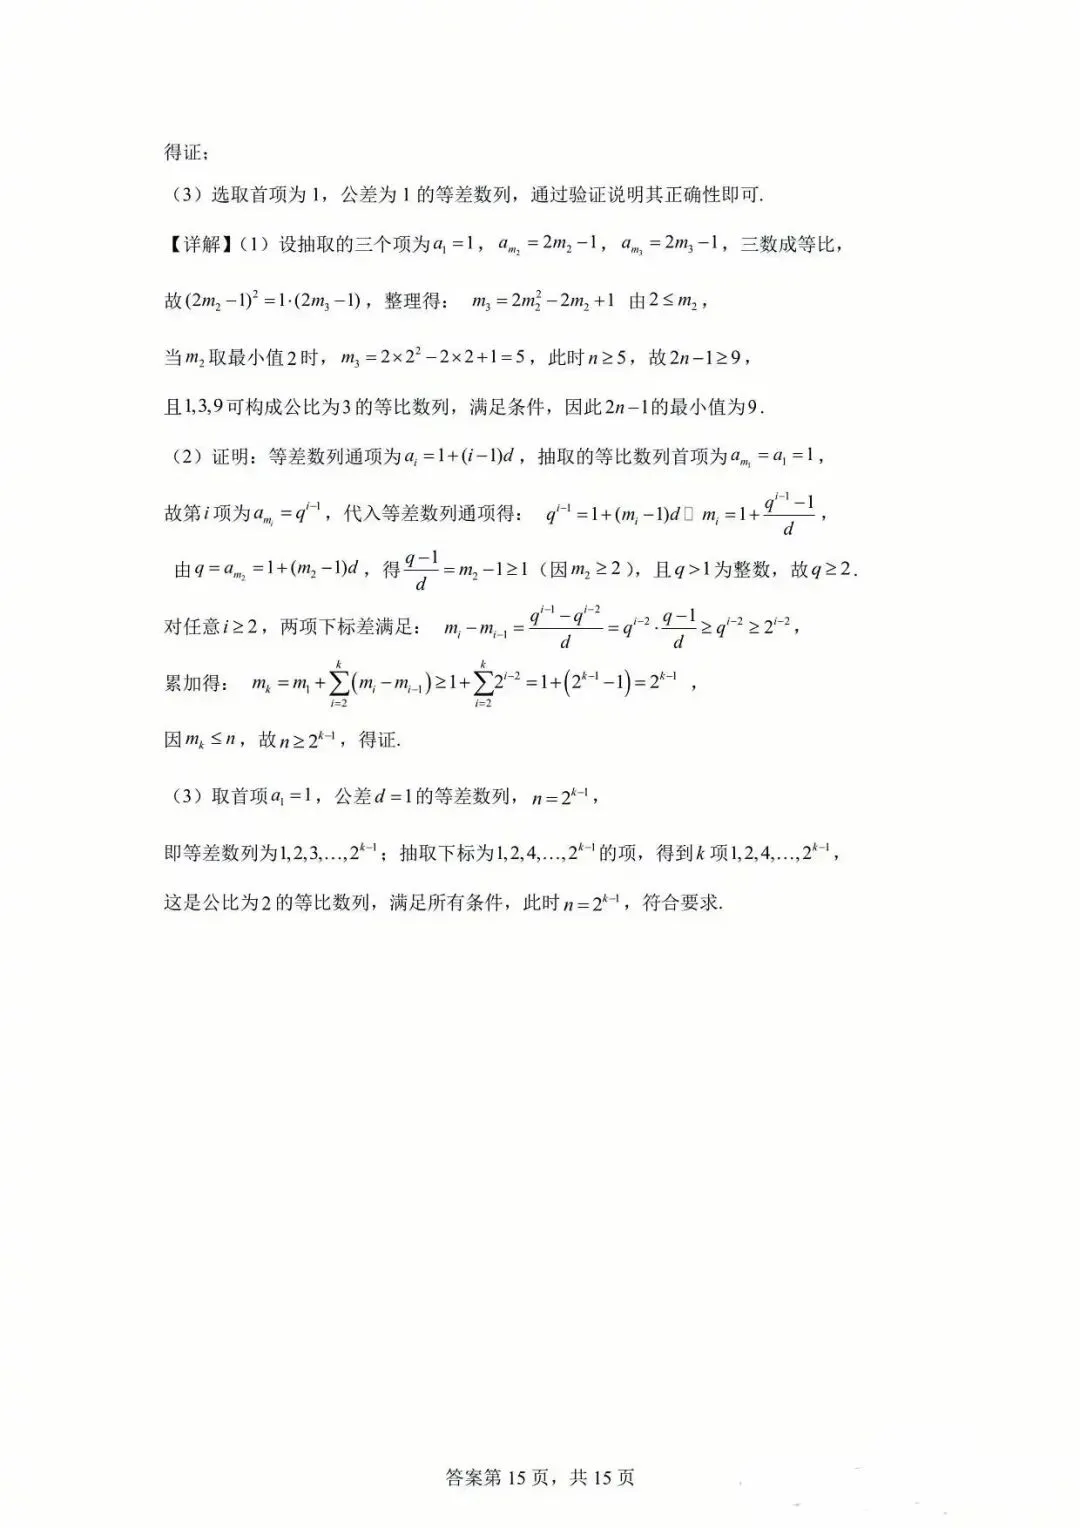 得证；
（3）选取首项为 1，公差为 1 的等差数列，通过验证说明其正确性即可.
【详解】（1）设抽取的三个项为 $a_1=1$，$a_{m_2}=2m_2-1$，$a_{m_3}=2m_3-1$，三数成等比，
故 $(2m_2-1)^2=1\cdot(2m_3-1)$，整理得： $m_3=2m_2^2-2m_2+1$ 由 $2\leq m_2$，
当 $m_2$ 取最小值 2 时，$m_3=2\times2^2-2\times2+1=5$，此时 $n\geq5$，故 $2n-1\geq9$，
且 1,3,9 可构成公比为 3 的等比数列，满足条件，因此 $2n-1$ 的最小值为 9.
（2）证明：等差数列通项为 $a_i=1+(i-1)d$，抽取的等比数列首项为 $a_{m_1}=a_1=1$，
故第 $i$ 项为 $a_{m_i}=q^{i-1}$，代入等差数列通项得： $q^{i-1}=1+(m_i-1)d$ □ $m_i=1+\frac{q^{i-1}-1}{d}$，
由 $q=a_{m_2}=1+(m_2-1)d$，得 $\frac{q-1}{d}=m_2-1\geq1$（因 $m_2\geq2$），且 $q>1$ 为整数，故 $q\geq2$.
对任意 $i\geq2$，两项下标差满足： $m_i-m_{i-1}=\frac{q^{i-1}-q^{i-2}}{d}=q^{i-2}\cdot\frac{q-1}{d}\geq q^{i-2}\geq2^{i-2}$，
累加得： $m_k=m_1+\sum_{i=2}^{k}(m_i-m_{i-1})\geq1+\sum_{i=2}^{k}2^{i-2}=1+(2^{k-1}-1)=2^{k-1}$ ，
因 $m_k\leq n$，故 $n\geq2^{k-1}$，得证.
（3）取首项 $a_1=1$，公差 $d=1$ 的等差数列，$n=2^{k-1}$，
即等差数列为 $1,2,3,\ldots,2^{k-1}$；抽取下标为 $1,2,4,\ldots,2^{k-1}$ 的项，得到 $k$ 项 $1,2,4,\ldots,2^{k-1}$，
这是公比为 2 的等比数列，满足所有条件，此时 $n=2^{k-1}$，符合要求.
答案第 15 页，共 15 页